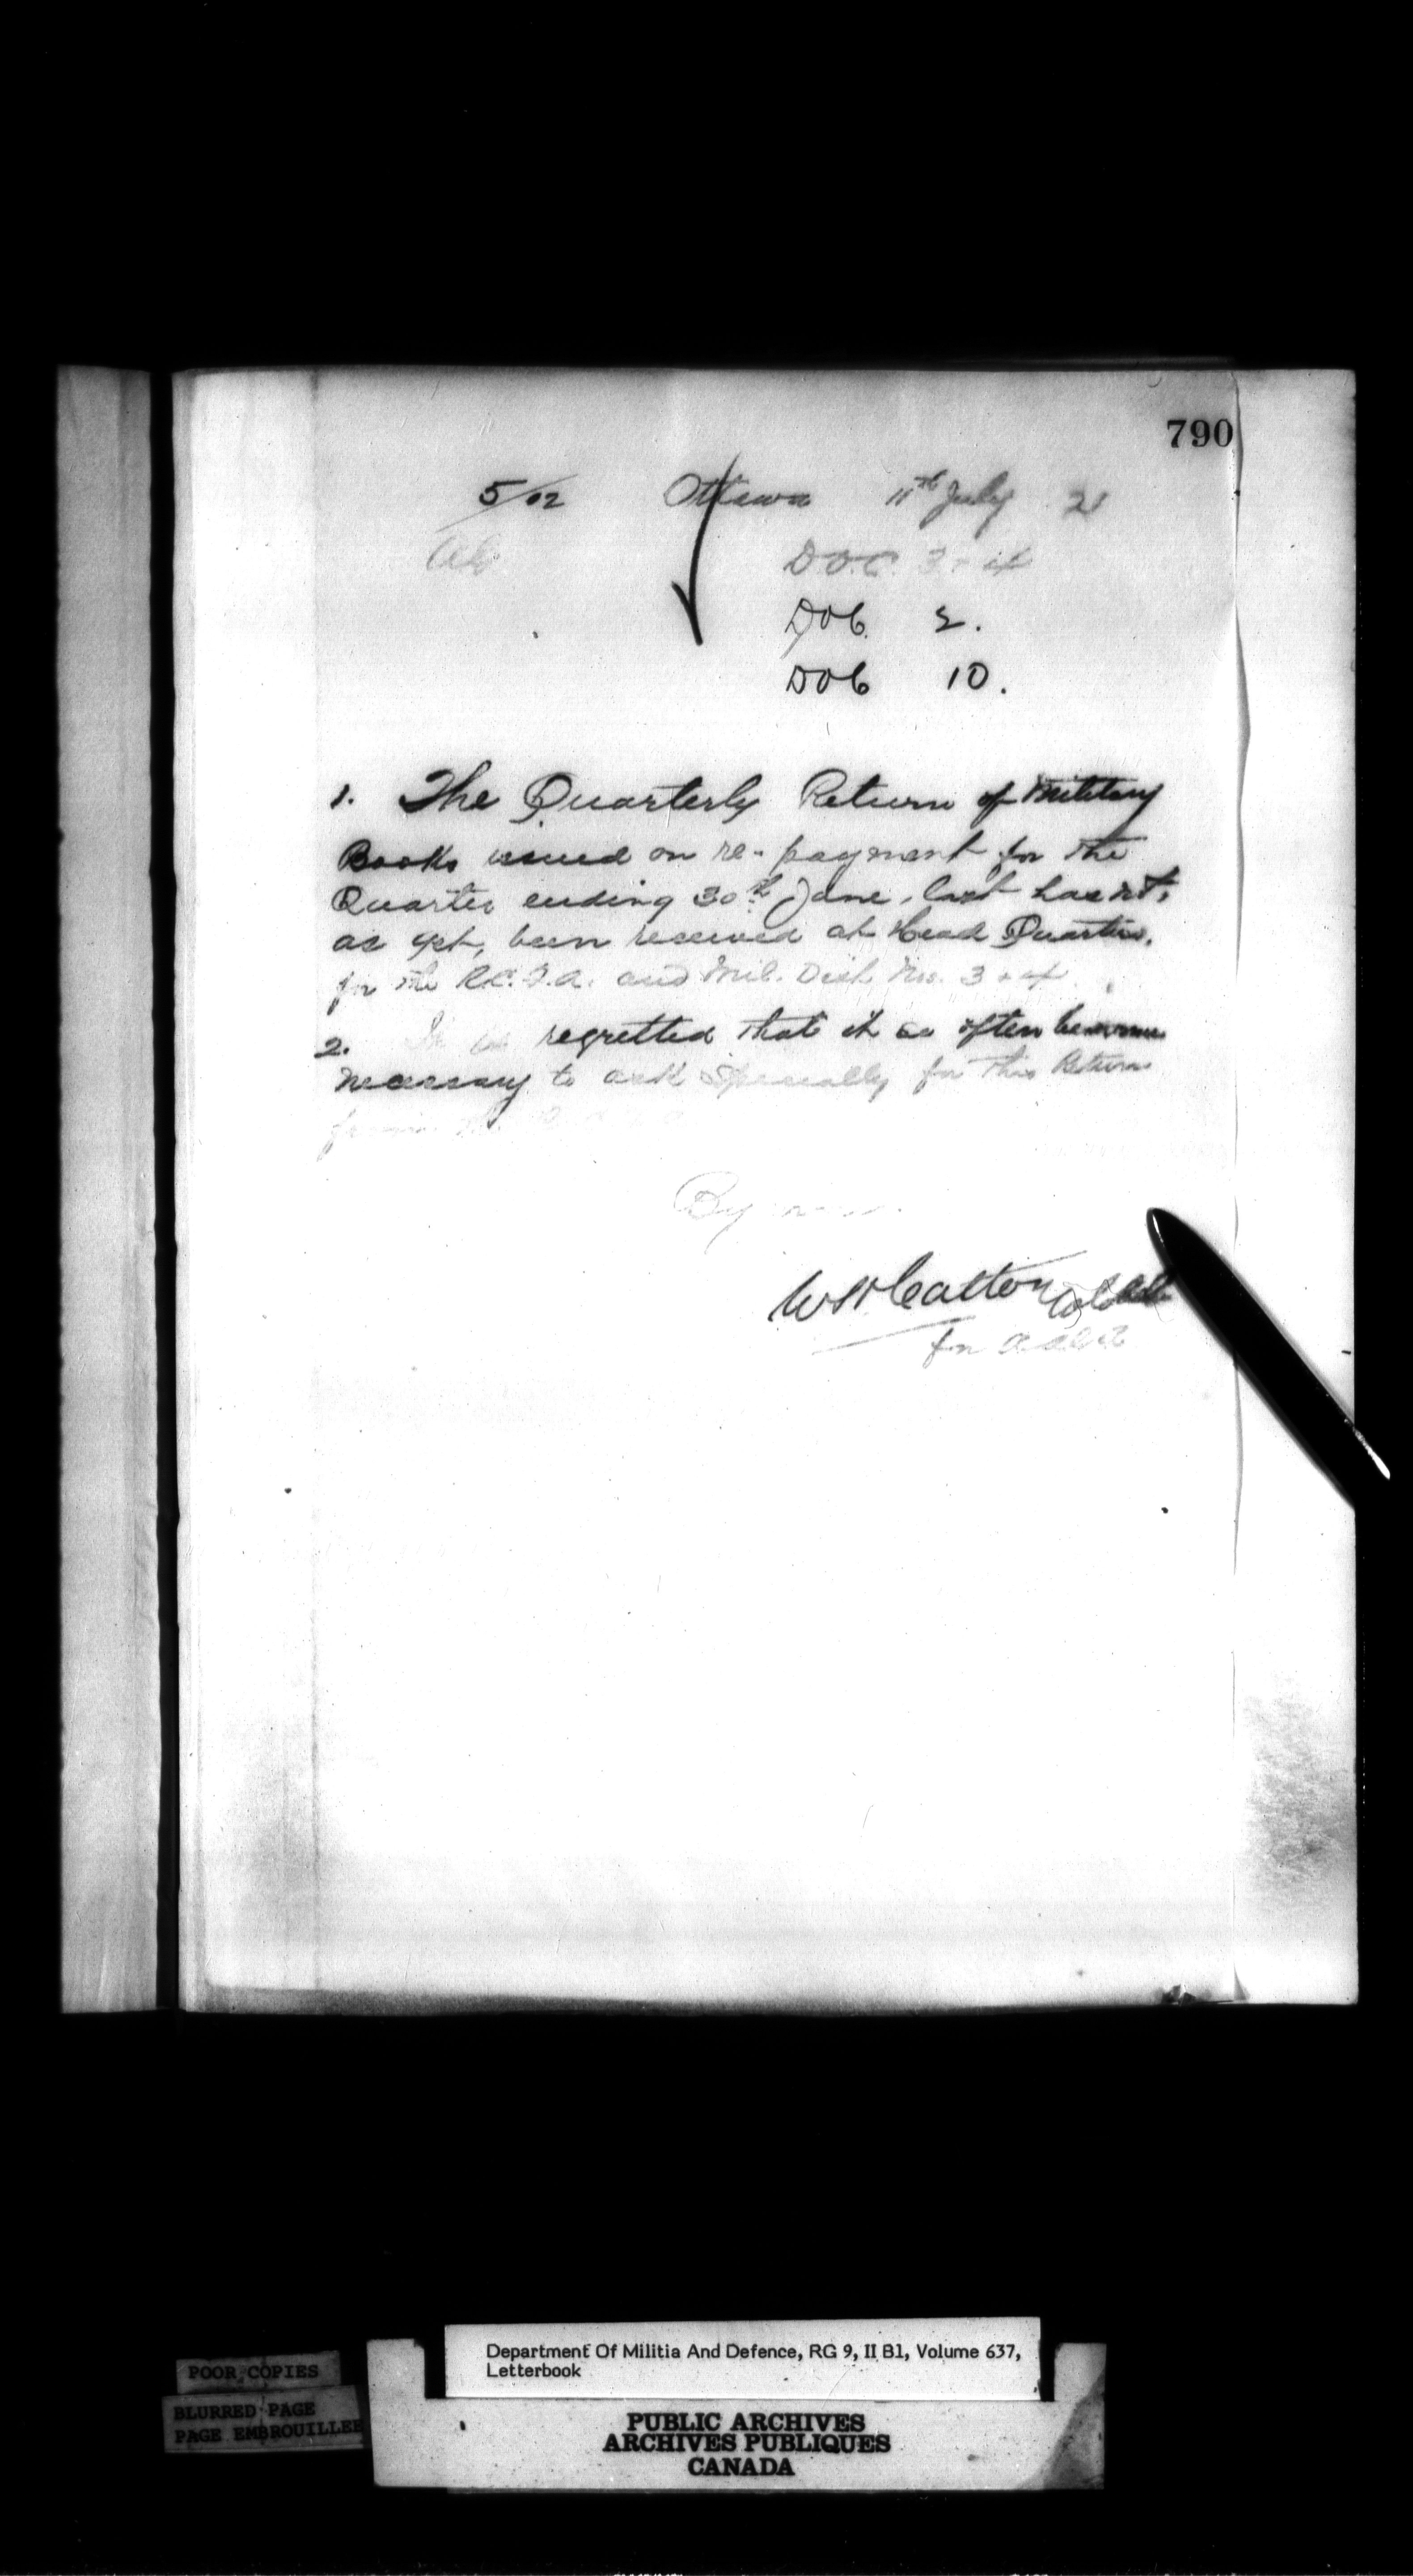 790
5/02 Ottawa 11th July 2
D.O.C. 3-4
DOC. 2.
DOC 10.
1. The Quarterly Return of Military
Books issued on re-payment for the
Quarter ending 30th June, last has not,
as yet, been received at Head Quarters,
for the R.C.F.A. and Mil. Dist. Nos. 3 & 4.
2. It is regretted that it so often becomes
necessary to ask specially for this Return
from
By
for
Department Of Militia And Defence, RG 9, II B1, Volume 637,
Letterbook
POOR COPIES
BLURRED PAGE
PAGE EMBROUILLEE
PUBLIC ARCHIVES
ARCHIVES PUBLIQUES
CANADA